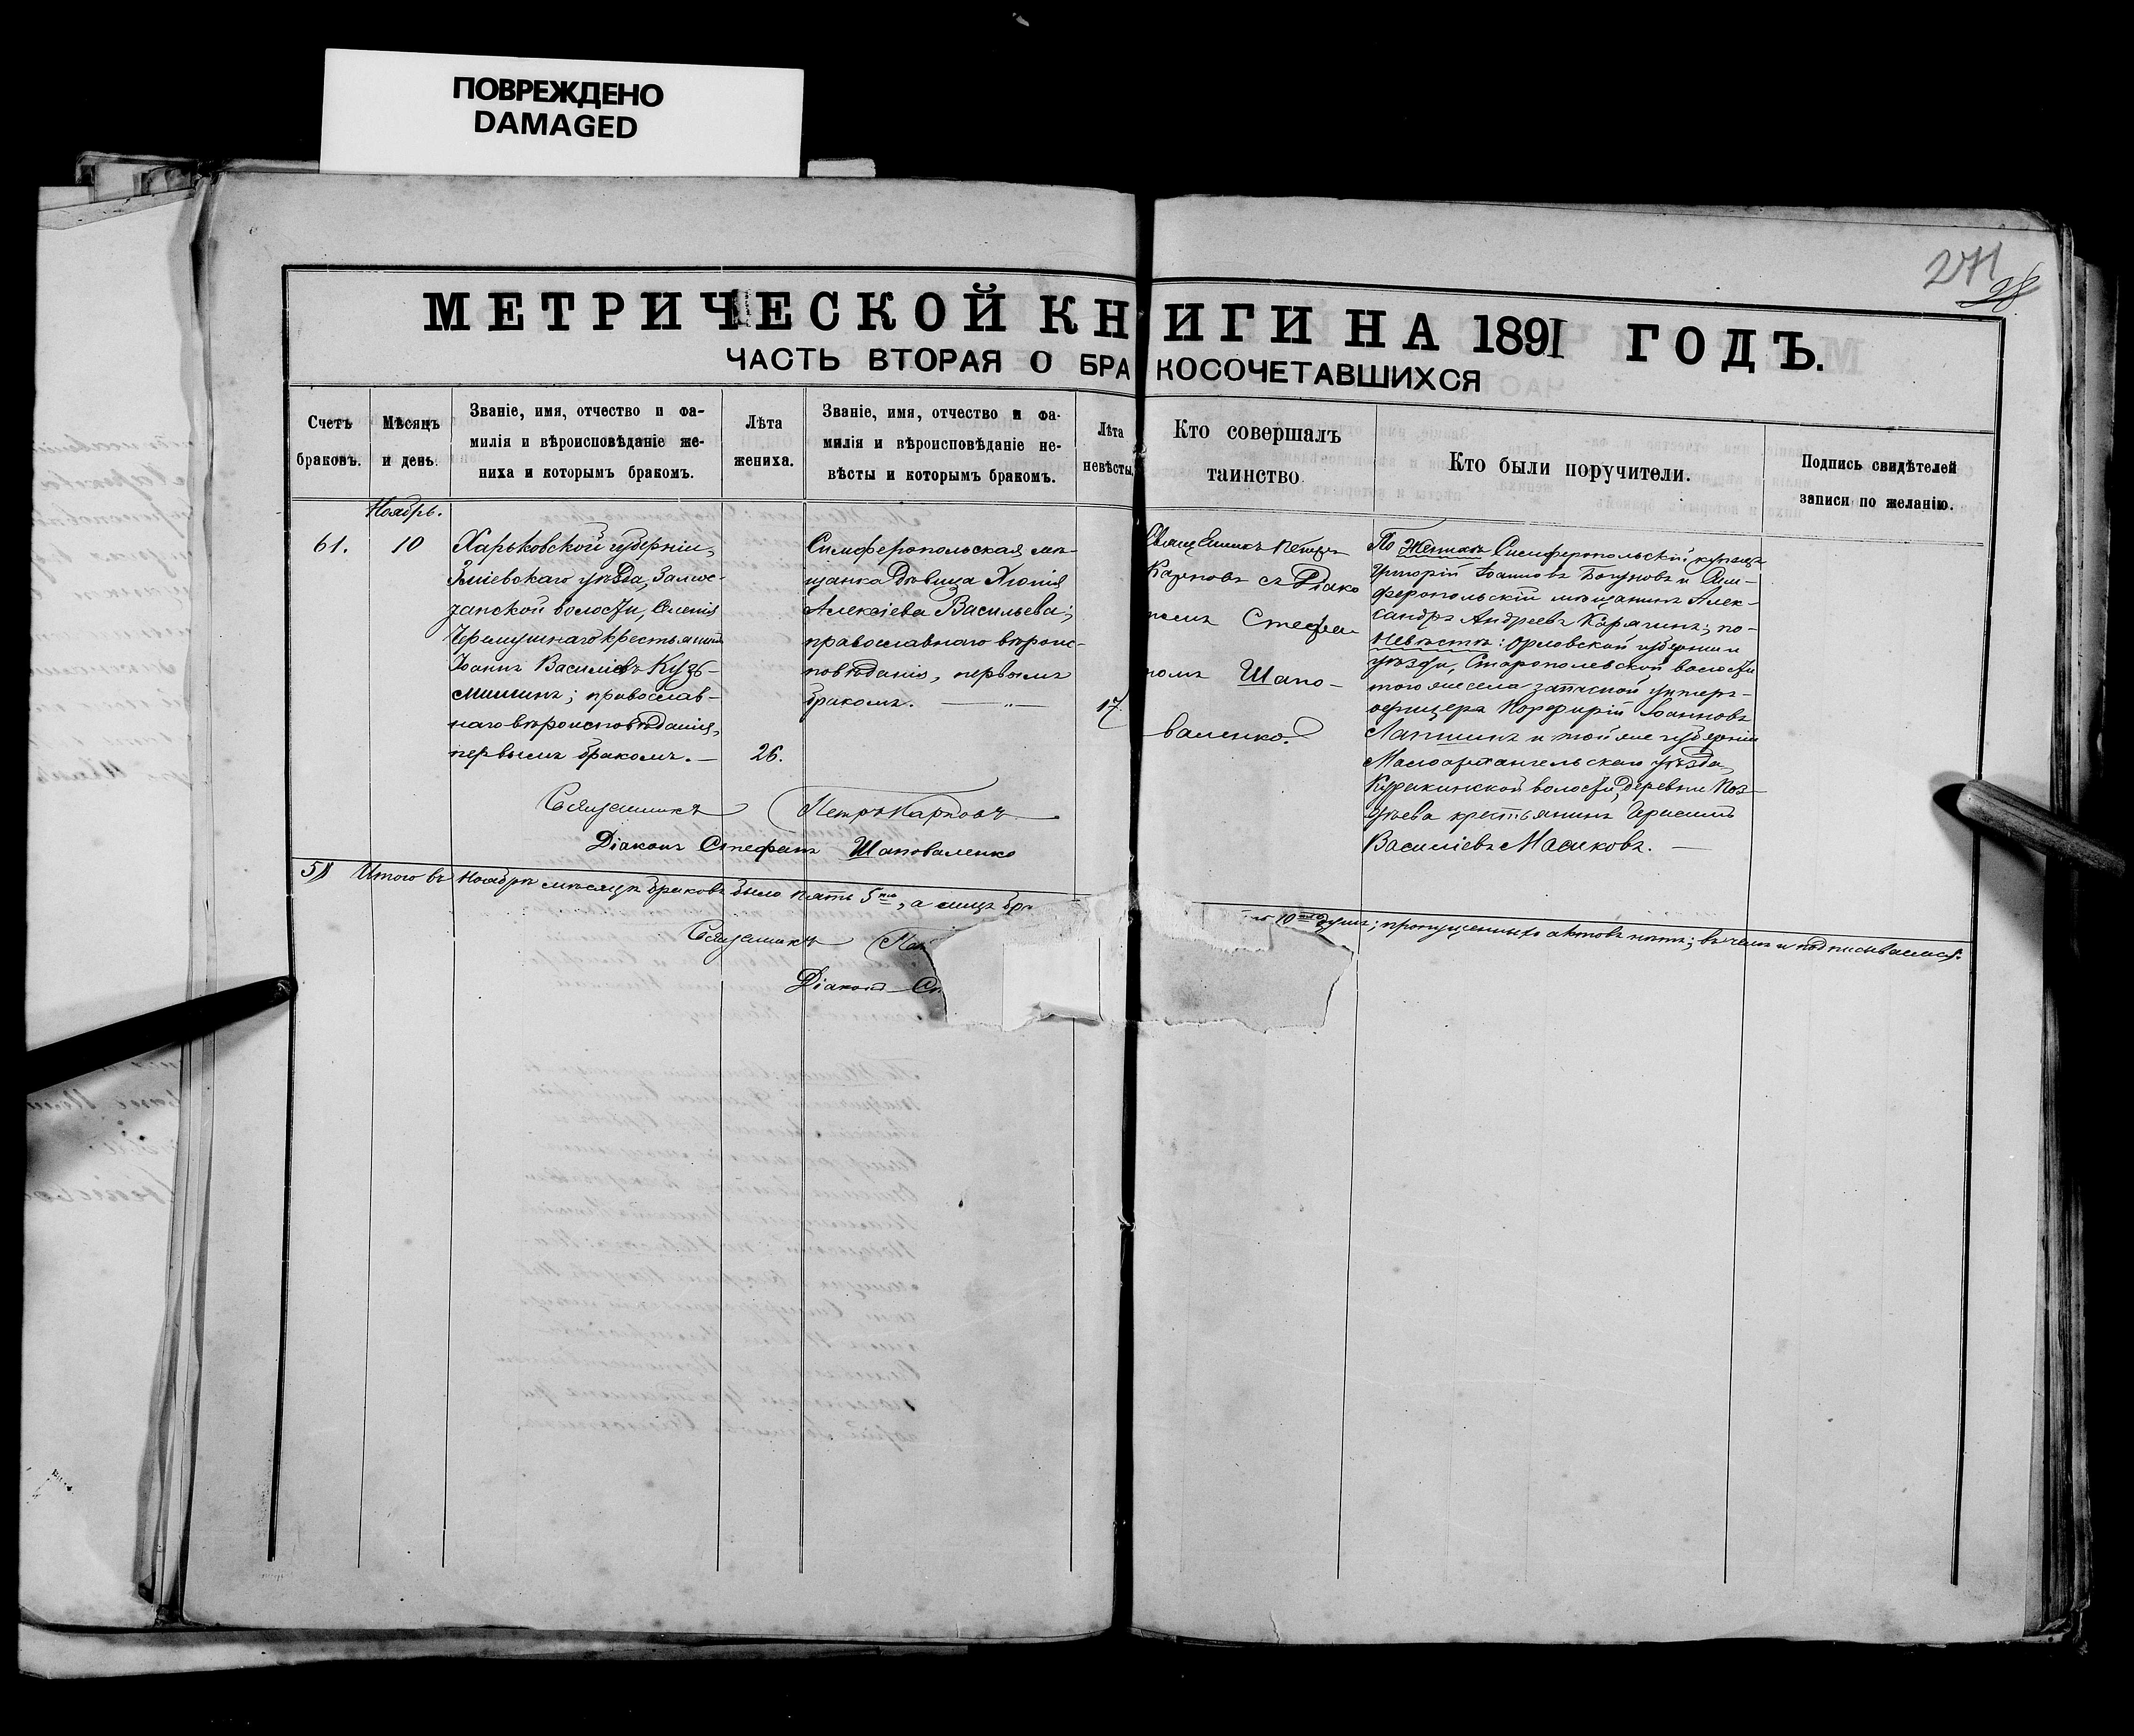 ПОВРЕЖДЕНО
DAMAGED
271
МЕТРИЧЕСКОЙ КНИГИ НА 1891 ГОДЪ.
ЧАСТЬ ВТОРАЯ О БРАКОСОЧЕТАВШИХСЯ
Счетъ
браковъ.
Мѣсяцъ
и день.
Званіе, имя, отчество и фа-
милія и вѣроисповѣданіе же-
ниха и которымъ бракомъ.
Лѣта
жениха.
Званіе, имя, отчество и фа-
милія и вѣроисповѣданіе не-
вѣсты и которымъ бракомъ.
Лѣта
невѣсты.
Кто совершалъ
таинство.
Кто были поручители.
Подпись свидѣтелей
записи по желанію.
Ноябрь.
61.
10
Харьковской губерніи,
Зміевскаго уѣзда,
волости, селенія
крестьянинъ
Іоаннъ Василіевъ Кузь-
мишинъ; православ-
наго вѣроисповѣданія,
первымъ бракомъ. —
26.
Симферопольская мѣ-
щанка дѣвица Хіонія
Алексіева Васильева;
православнаго вѣроис-
повѣданія, первымъ
бракомъ. — „ —
17.
Священникъ Петръ
Карповъ съ Діако
номъ Стефа
номъ Шапо-
валенко.
По Женихѣ Симферопольскій купецъ
Григорій Іоанновъ и Сим-
феропольскій мѣщанинъ Алек-
сандръ Андреевъ Карягинъ; по-
Невѣстѣ: Орловской губерніи и
уѣзда, Старопольской волости
того же села запасной унтеръ-
офицеръ Порфирій Іоанновъ
Лапшинъ и той же губерніи
Малоархангельскаго уѣзда,
Куракинской волости, деревни Поз-
крестьянинъ Герасимъ
Василіевъ Масиковъ. —
Священникъ Петръ Карповъ
Діаконъ Стефанъ Шаповаленко
5) Итого въ Ноябрѣ мѣсяцѣ браковъ было пять 5ть, а лицъ бр 10ть душъ; пропущенныхъ актовъ нѣтъ; въ чемъ и подписываемся:
Священникъ
Діаконъ